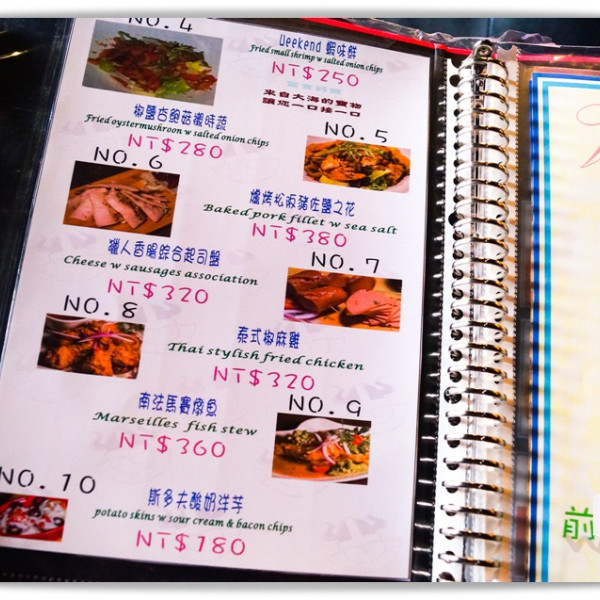 NO.4
Weekend 蝦味鮮
Fried small shrimp w salted onion chips
NT$250
來自大海的寶物
讓您一口接一口
椒鹽杏鮑菇襯時蔬
Fried oystermushroom w salted onion chips
NT$280
NO.5
NO.6
爐烤松阪豬佐鹽之花
Baked pork fillet w sea salt
NT$380
獵人香腸綜合起司盤
Cheese w sausages association
NT$320
NO.7
NO.8
泰式椒麻雞
Thai stylish fried chicken
NT$320
南法馬賽燉魚
Marseilles fish stew
NT$360
NO.9
NO.10
斯多夫酸奶洋芋
potato skins w sour cream & bacon chips
NT$180
前